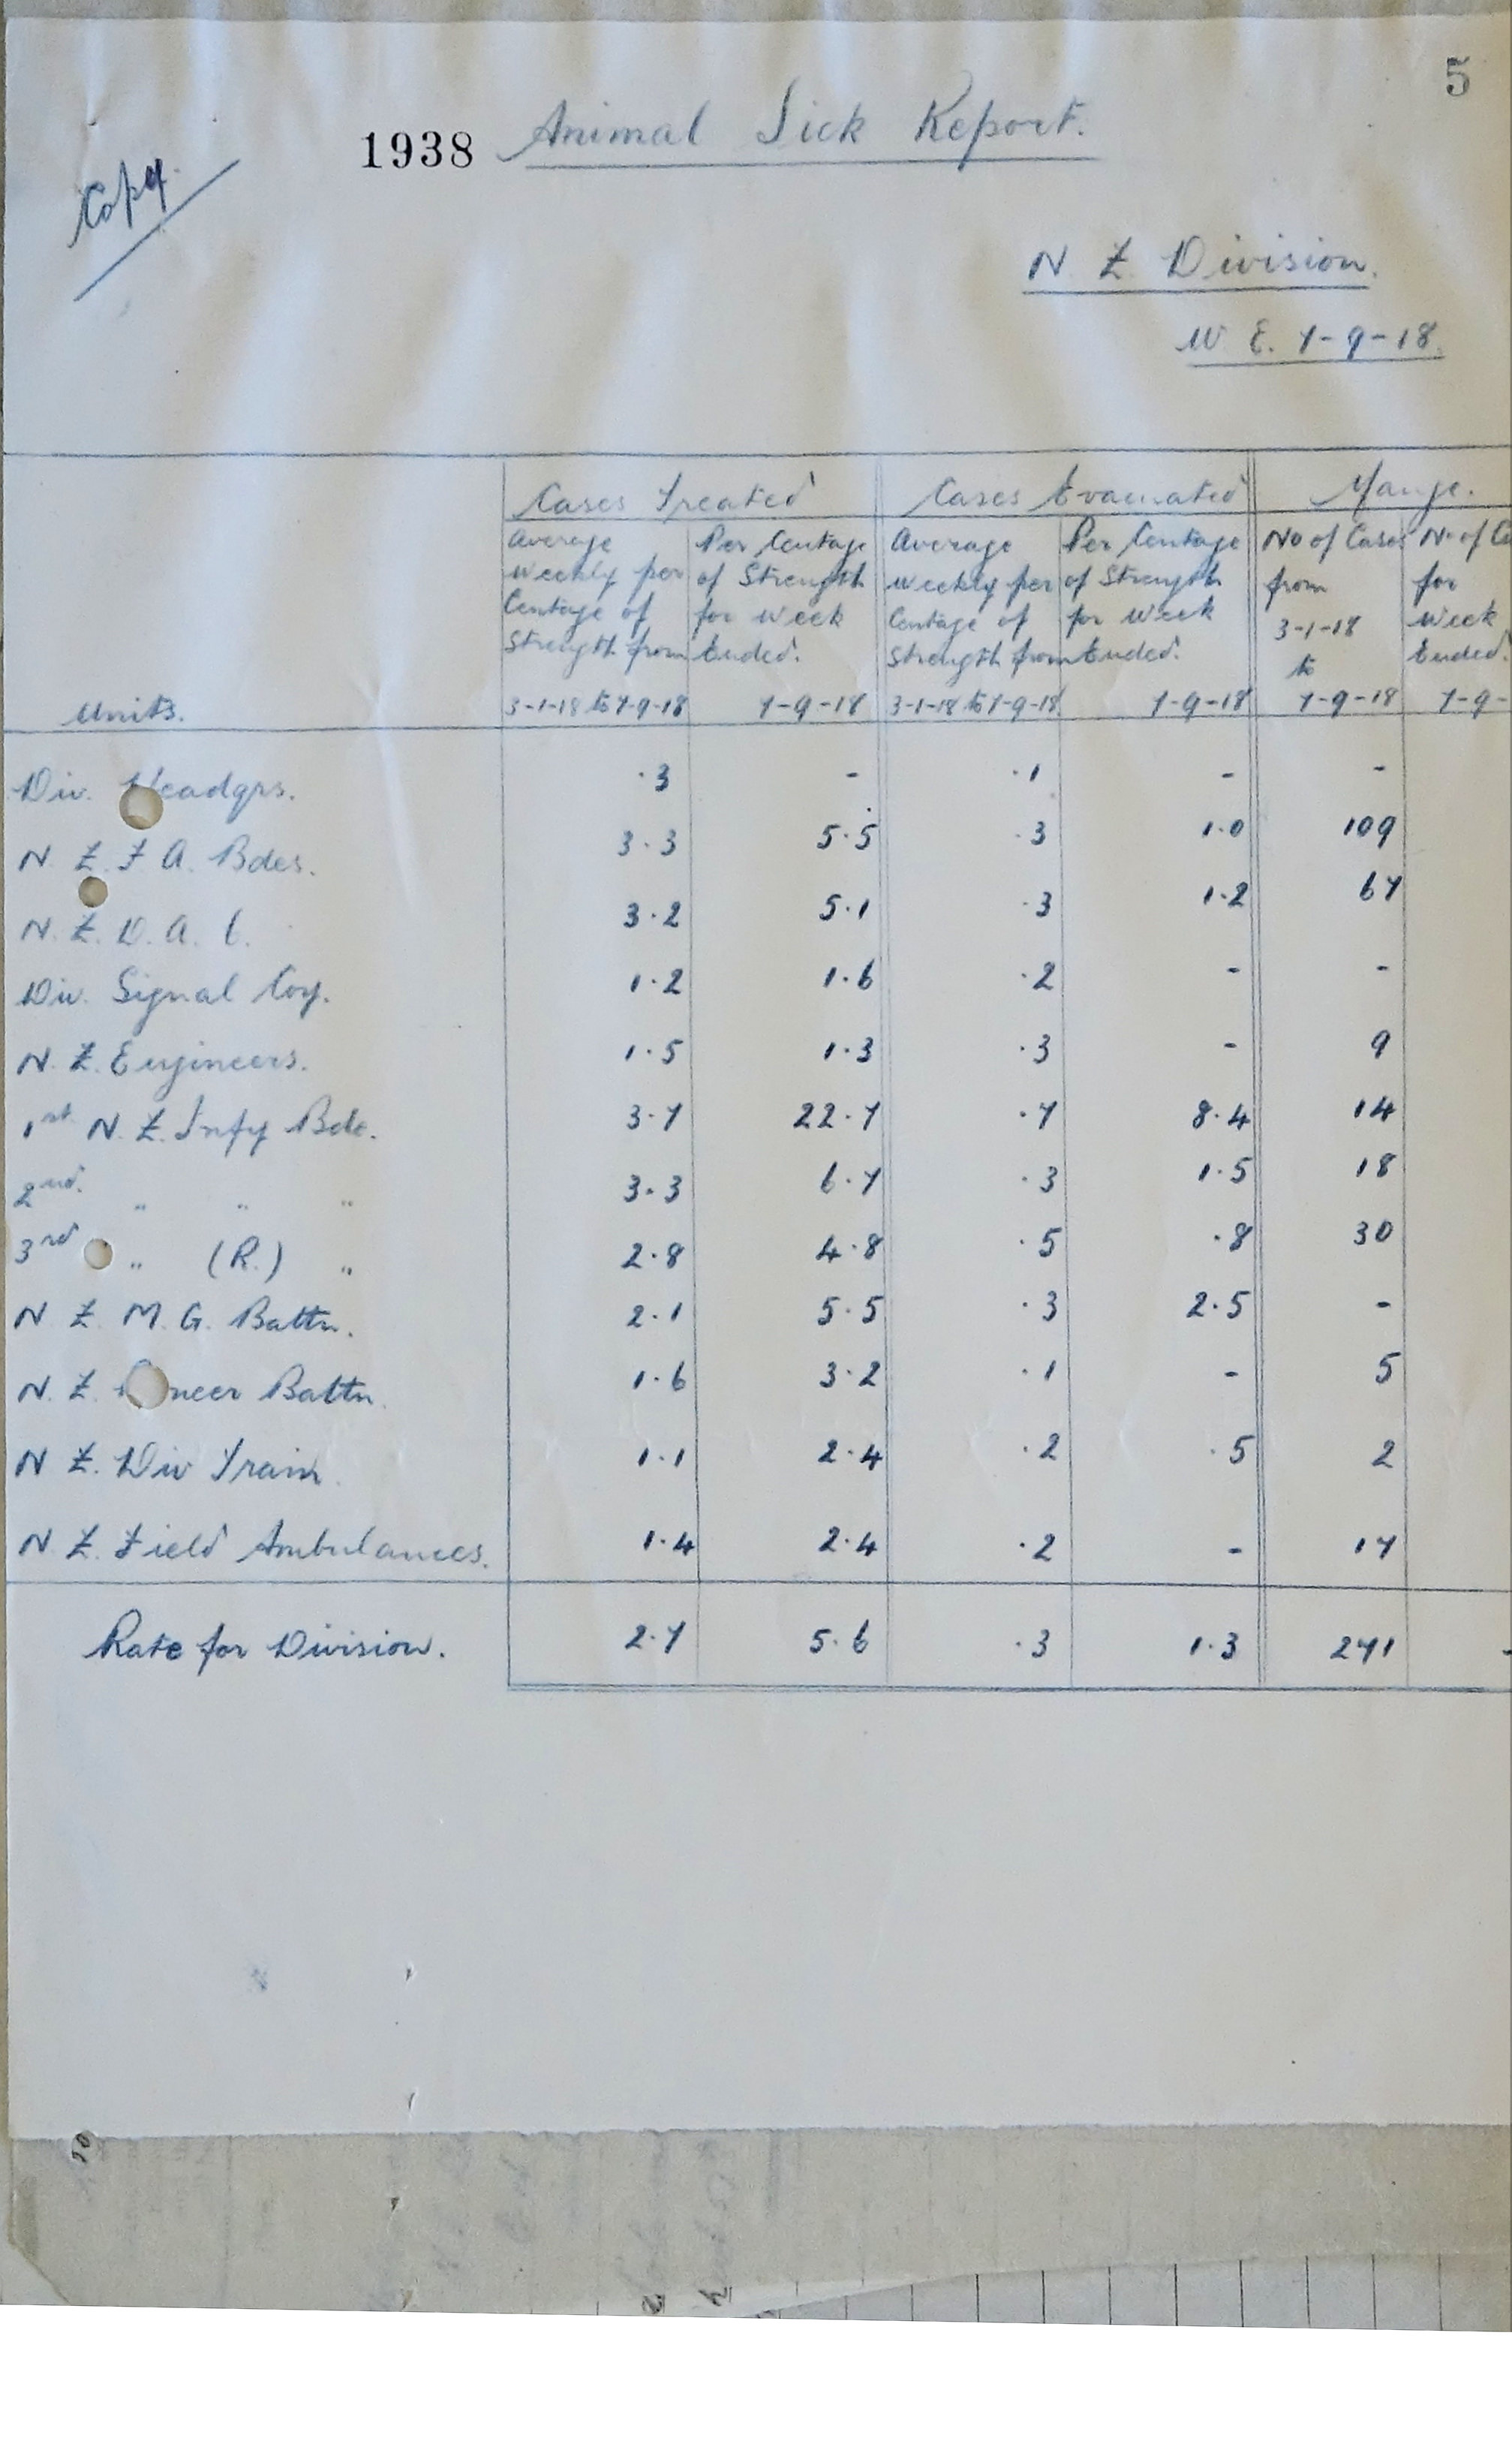 5
1938 Animal Sick Report.
Copy.
N. Z. Division.
W. E. 7-9-18.
Cases Treated Cases Evacuated Mange.
Average Per Centage Average Per Centage No of Cases No of Ca
Weekly per of Strength Weekly per of Strength from for
Centage of for Week Centage of for Week 3-1-18 Week
Strength from Ended. Strength from Ended. to Ended.
Units. 3-1-18 to 7-9-18 7-9-18 3-1-18 to 7-9-18 7-9-18 7-9-18 7-9-
Div. Headqrs. .3 - .1 - -
N. Z. F. A. Bdes. 3.3 5.5 .3 1.0 109
N. Z. D. A. C. 3.2 5.1 .3 1.2 67
Div. Signal Coy. 1.2 1.6 .2 - -
N. Z. Engineers. 1.5 1.3 .3 - 9
1st N. Z. Infy Bde. 3.7 22.7 .7 8.4 14
2nd. " " " 3.3 6.7 .3 1.5 18
3rd " (R.) " 2.8 4.8 .5 .8 30
N. Z. M. G. Battn. 2.1 5.5 .3 2.5 -
N. Z. P neer Battn. 1.6 3.2 .1 - 5
N. Z. Div Train. 1.1 2.4 .2 .5 2
N. Z. Field Ambulances. 1.4 2.4 .2 - 17
Rate for Division. 2.7 5.6 .3 1.3 271 -